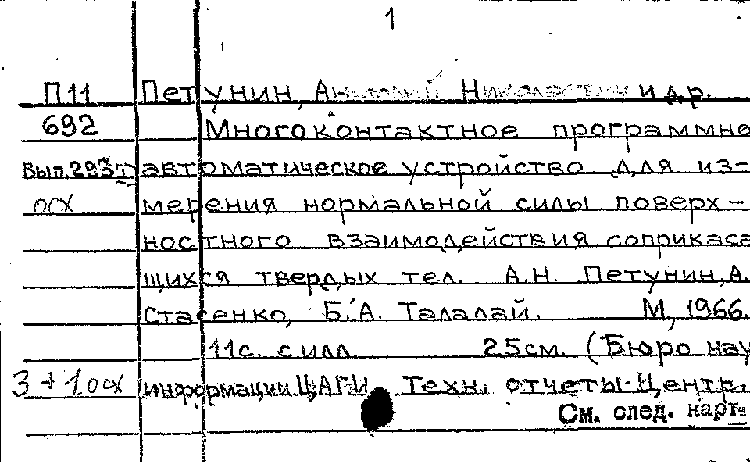 1
П11 Петунин, Анатолий Николаевич и др.
692 Многоконтактное программно
Вып. 293 автоматическое устройство для из-
осх мерения нормальной силы поверх-
ностного взаимодействия соприкаса
щихся твердых тел. А.Н. Петунин, А.
Стасенко, Б.А. Талалай. М, 1966.
11с. с илл. 25см. (Бюро нау
3 + 1 осх информации ЦАГИ Техн. отчеты Центр.
См. след. карт.